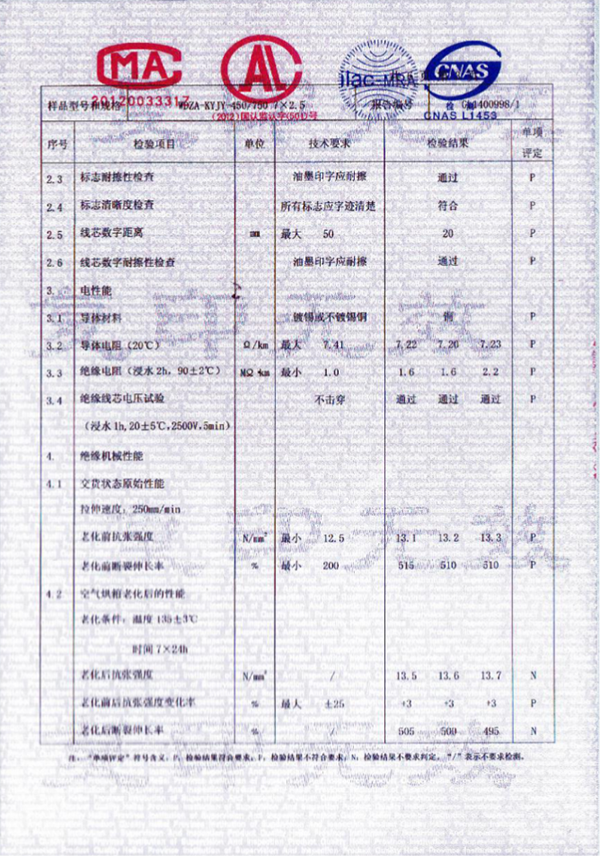 MA
AL
ilac-MRA
CNAS
20120033317
(2012)国认监认字(501)号
CNAS L1453
样品型号和规格 WDZA-KYJY-450/750 7×2.5 报告编号 1400998/1
序号 检验项目 单位 技术要求 检验结果 单项评定
2.3 标志耐擦性检查 油墨印字应耐擦 通过 P
2.4 标志清晰度检查 所有标志应字迹清楚 符合 P
2.5 线芯数字距离 mm 最大 50 20 P
2.6 线芯数字耐擦性检查 油墨印字应耐擦 通过 P
3. 电性能
3.1 导体材料 镀锡或不镀锡铜 铜 P
3.2 导体电阻(20℃) Ω/km 最大 7.41 7.22 7.26 7.23 P
3.3 绝缘电阻(浸水2h, 90±2℃) MΩ·km 最小 1.0 1.6 1.6 2.2 P
3.4 绝缘线芯电压试验 不击穿 通过 通过 通过 P
(浸水1h,20±5℃,2500V,5min)
4. 绝缘机械性能
4.1 交货状态原始性能
拉伸速度: 250mm/min
老化前抗张强度 N/mm² 最小 12.5 13.1 13.2 13.3 P
老化前断裂伸长率 % 最小 200 515 510 510 P
4.2 空气烘箱老化后的性能
老化条件: 温度135±3℃
时间7×24h
老化后抗张强度 N/mm² / 13.5 13.6 13.7 N
老化前后抗张强度变化率 % 最大 ±25 +3 +3 +3 P
老化后断裂伸长率 % / 505 500 495 N
注: "单项评定"符号含义: P, 检验结果符合要求; F, 检验结果不符合要求; N, 检验结果不要求判定。 "/"表示不要求检测。
复印无效